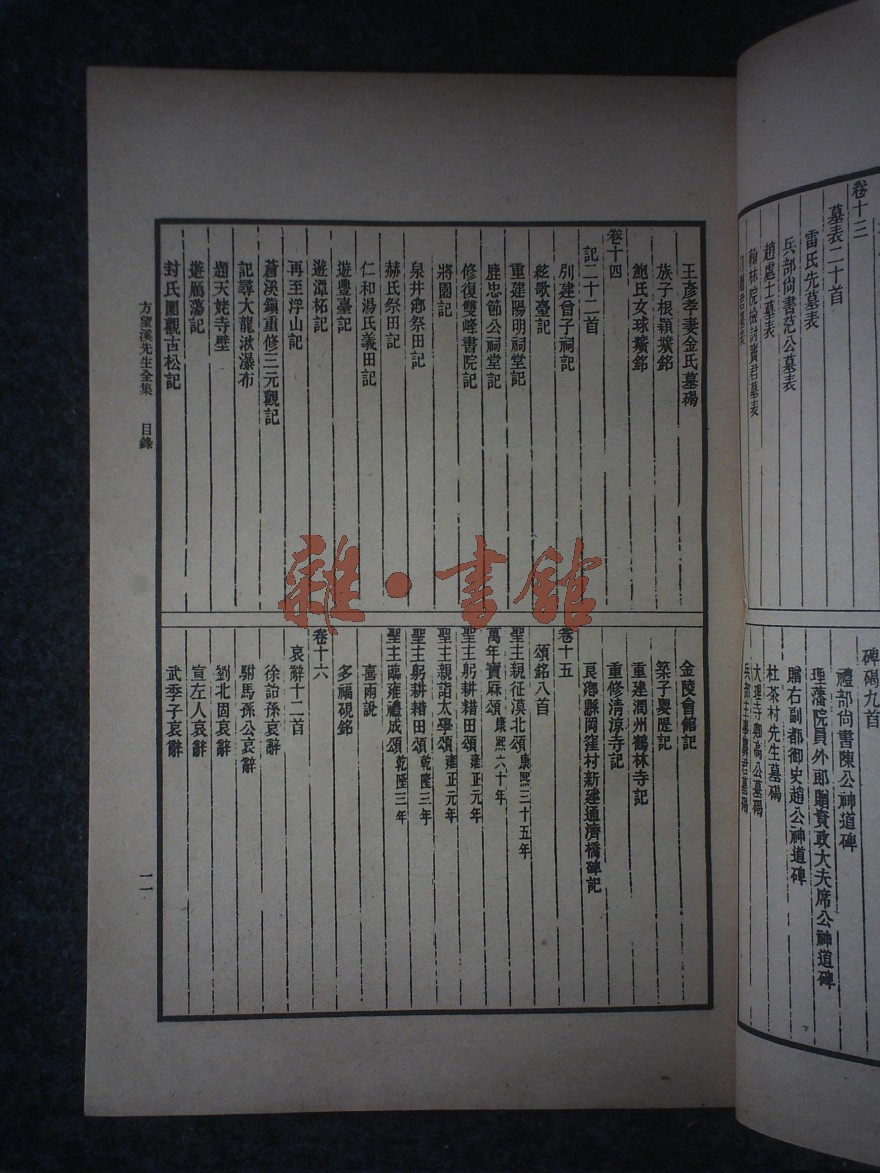 卷十三
墓表二十首
雷氏先墓表
兵部尚書范公墓表
趙處士墓表
翰林院檢討竇君墓表
碑碣九首
禮部尚書陳公神道碑
理藩院員外郎贈資政大夫席公神道碑
贈右副都御史趙公神道碑
杜茶村先生墓碣
大理寺卿高公墓碣
兵部主事龔君墓碣
王彥孝妻金氏墓碣
族子根穎壙銘
鮑氏女球壙銘
卷十四
記二十二首
別建曾子祠記
絃歌臺記
重建陽明祠堂記
鹿忠節公祠堂記
修復雙峰書院記
將園記
泉井鄉祭田記
赫氏祭田記
仁和湯氏義田記
遊豐臺記
遊潭柘記
再至浮山記
蒼溪鎮重修三元觀記
記尋大龍湫瀑布
題天姥寺壁
遊鴈蕩記
封氏園觀古松記
金陵會館記
築子嬰隄記
重建潤州鶴林寺記
重修清涼寺記
良鄉縣岡窪村新建通濟橋碑記
卷十五
頌銘八首
聖主親征漠北頌 康熙三十五年
萬年寶厤頌 康熙六十年
聖主躬耕耤田頌 雍正元年
聖主親詣太學頌 雍正元年
聖主躬耕耤田頌 乾隆三年
聖主臨雍禮成頌 乾隆三年
喜雨說
多福硯銘
卷十六
哀辭十二首
徐詒孫哀辭
駙馬孫公哀辭
劉北固哀辭
宣左人哀辭
武季子哀辭
方望溪先生全集 目錄
一一
雜·書館